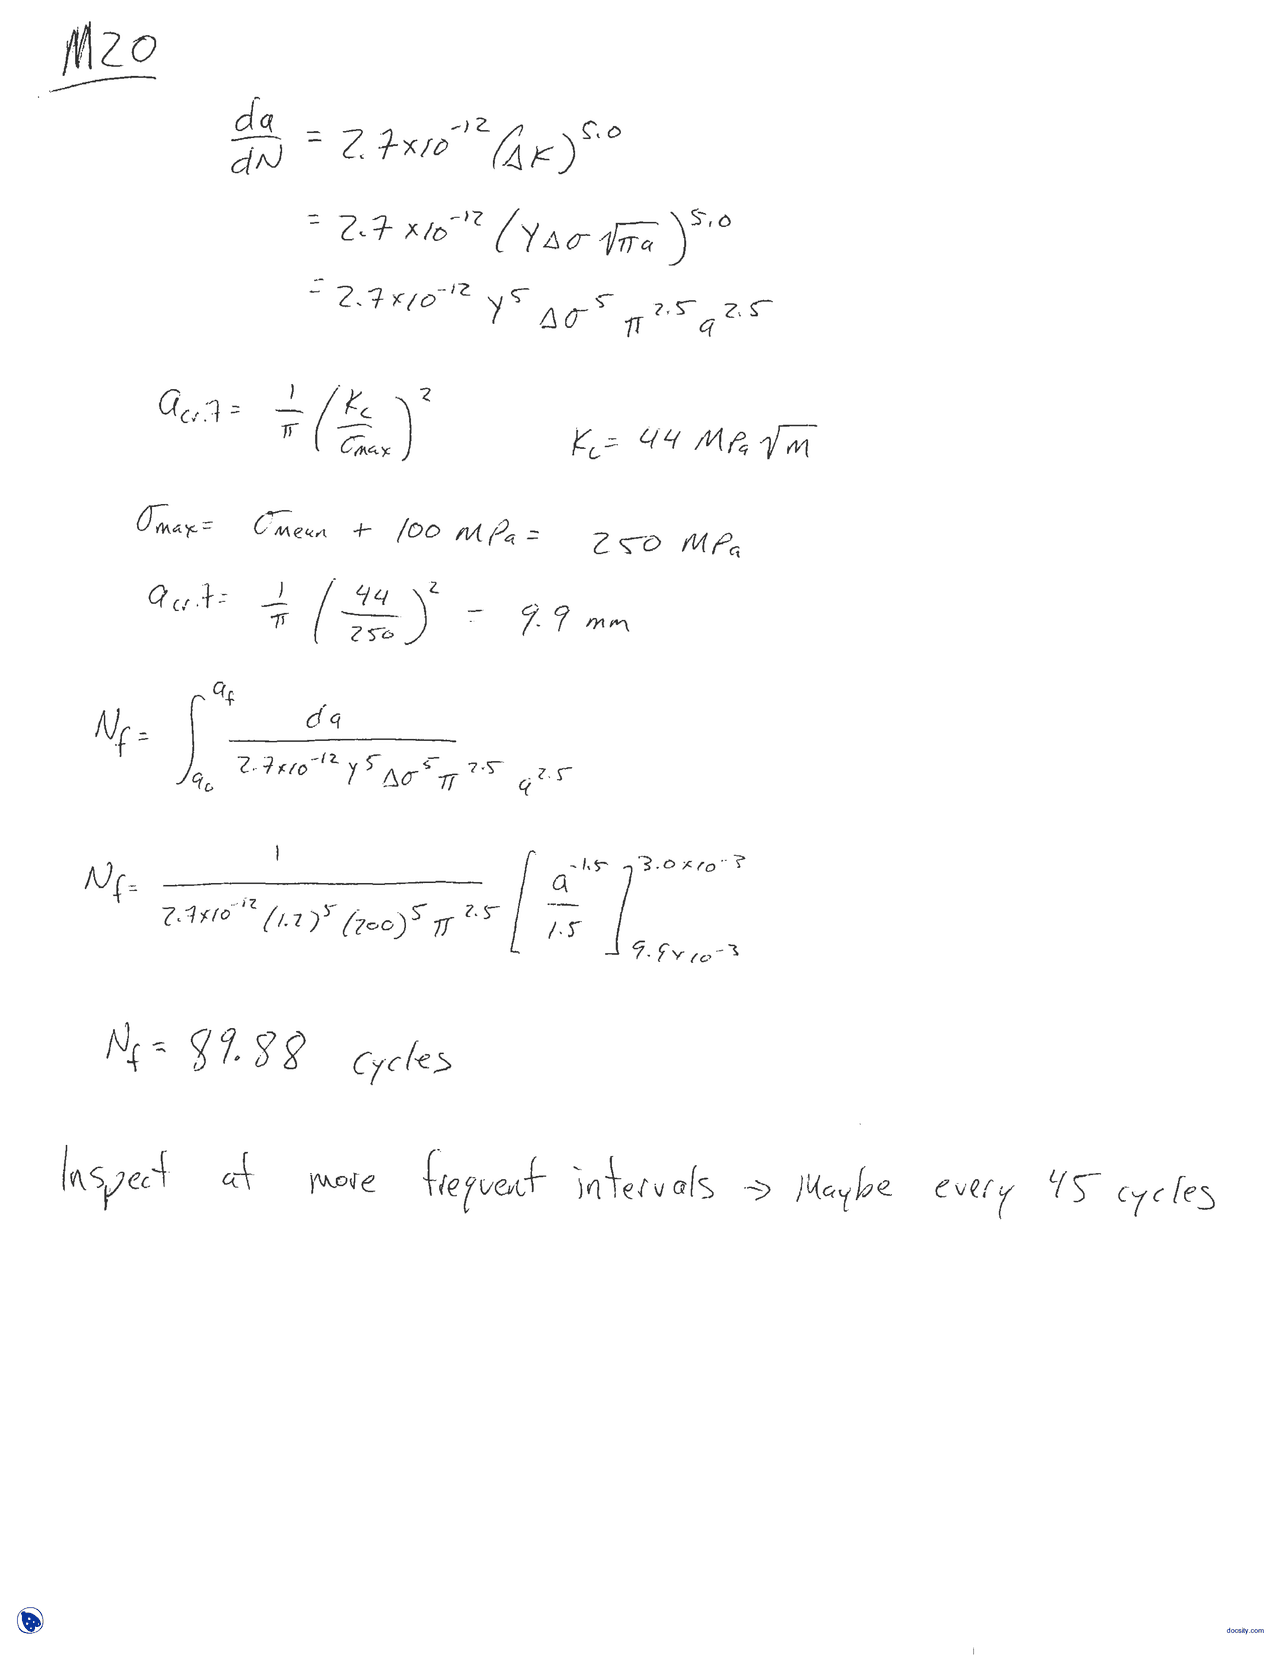 M20
da/dN = 2.7×10^-12 (ΔK)^5.0
= 2.7×10^-12 (YΔσ√πa)^5.0
= 2.7×10^-12 Y^5 Δσ^5 π^2.5 a^2.5
a_crit = 1/π (K_c/σ_max)^2    K_c = 44 MPa√m
σ_max = σ_mean + 100 MPa = 250 MPa
a_crit = 1/π (44/250)^2 = 9.9 mm
N_f = ∫_{a_0}^{a_f} da / 2.7×10^-12 Y^5 Δσ^5 π^2.5 a^2.5
N_f = 1 / 2.7×10^-12 (1.2)^5 (200)^5 π^2.5 [a^-1.5 / 1.5]^{3.0×10^-3}_{9.9×10^-3}
N_f = 89.88 cycles
Inspect at more frequent intervals → Maybe every 45 cycles
docsity.com